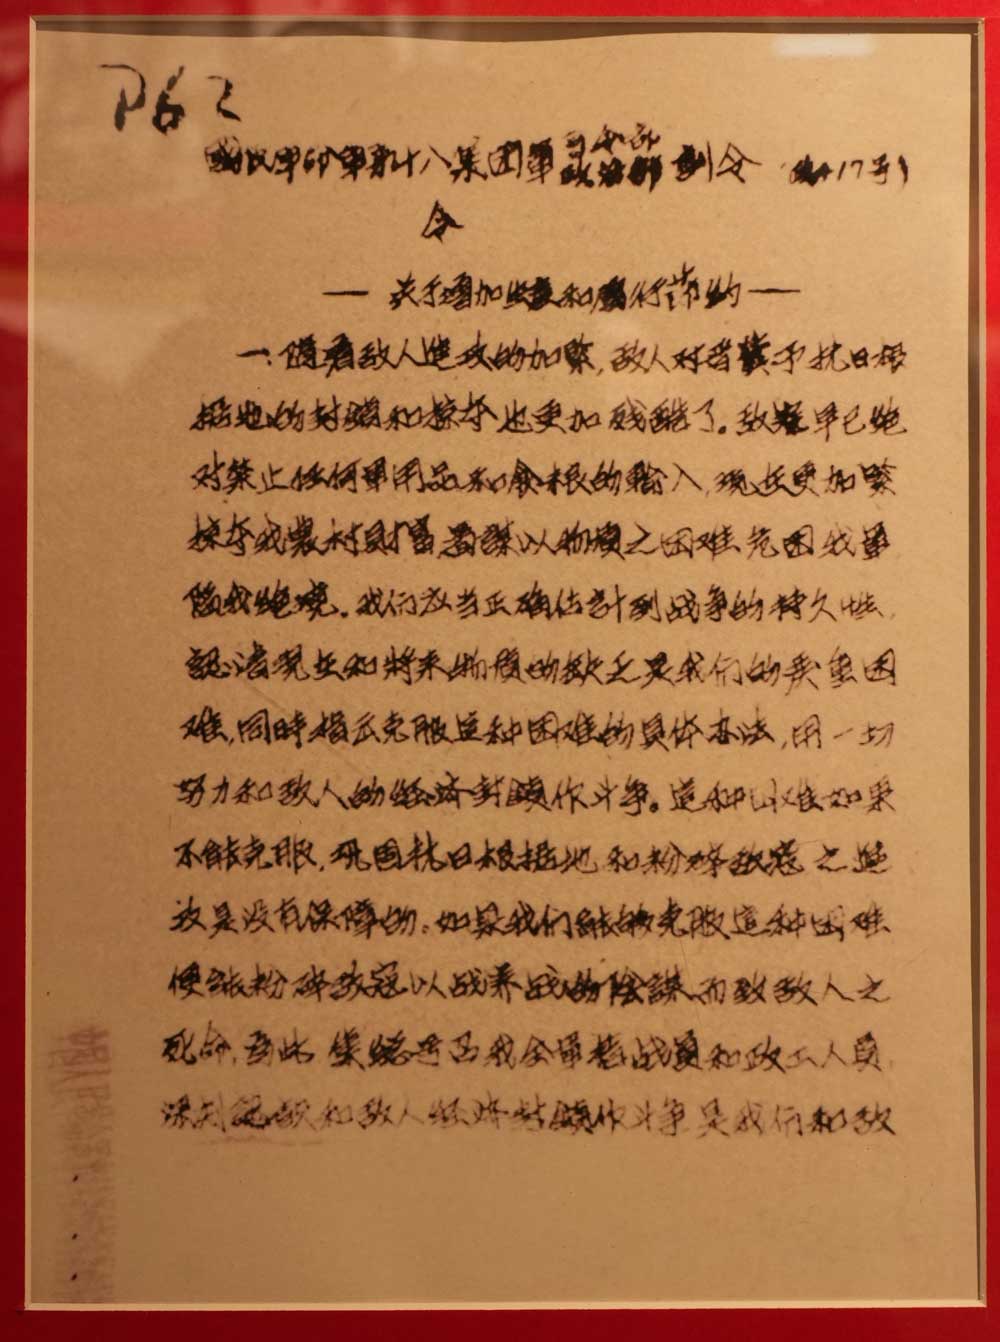 國民革命軍第十八集团軍司令部政治部訓令
令
— 关于增加生產和厲行节約 —
一、隨着敌人進攻的加緊，敌人对晋冀予抗日根
据地的封鎖和掠夺也更加残酷了。敌寇早已绝
对禁止任何軍用品和食粮的輸入，现在更加緊
掠夺我農村財富 謀以物質之困难 困我軍
陷我绝境。我们应当正确估計到战争的持久性，
認清现在和將来物質的缺乏是我们的严重困
难，同時指示克服這种困难的具体办法，用一切
努力和敌人的经济封鎖作斗争。這种困难如果
不能克服，巩固抗日根据地和粉碎敌寇之進
攻是没有保障的。如果我们能够克服這种困难
便能粉碎敌寇以战养战的陰謀而致敌人之
死命，为此 号召我全軍指战員和政工人員，
深刻認識和敌人经济封鎖作斗争是我们和敌